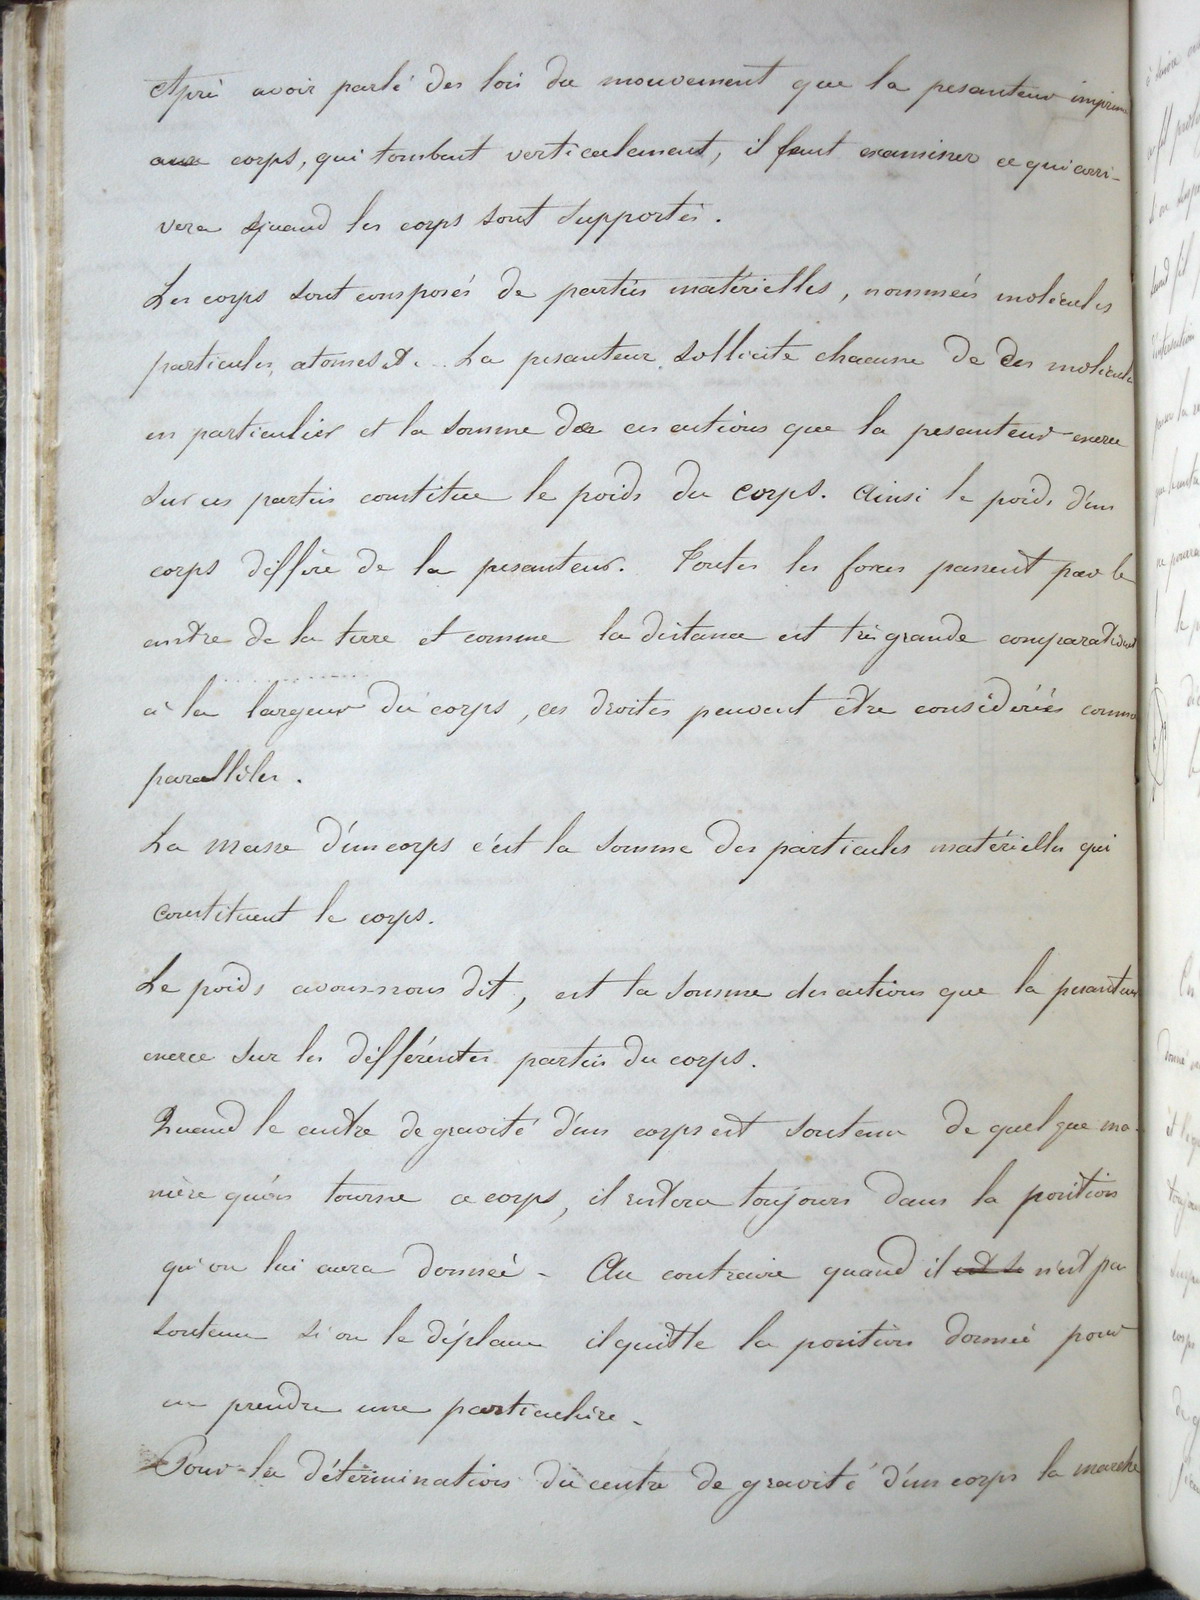 Après avoir parlé des lois du mouvement que la pesanteur imprime
aux corps, qui tombent verticalement, il faut examiner ce qui arri-
vera quand les corps sont supportés.
Les corps sont composés de parties matérielles, nommées molécules
particules, atomes &c.. La pesanteur sollicite chacune de ces molécules
en particulier et la somme de ces actions que la pesanteur exerce
sur ces parties constitue le poids du corps. Ainsi le poids d'un
corps diffère de la pesanteur. Toutes les forces passent par le
centre de la terre et comme la distance est très grande comparativement
à la largeur du corps, ces droites peuvent être considérées comme
parallèles.
La masse d'un corps c'est la somme des particules matérielles qui
constituent le corps.
Le poids avons-nous dit, est la somme des actions que la pesanteur
exerce sur les différentes parties du corps.
Quand le centre de gravité d'un corps est soutenu de quelque ma-
nière qu'on tourne ce corps, il restera toujours dans la position
qu'on lui aura donnée - Au contraire quand il n'est pas
soutenu si on le déplace il quitte la position donnée pour
en prendre une particulière -
Pour la détermination du centre de gravité d'un corps la marche